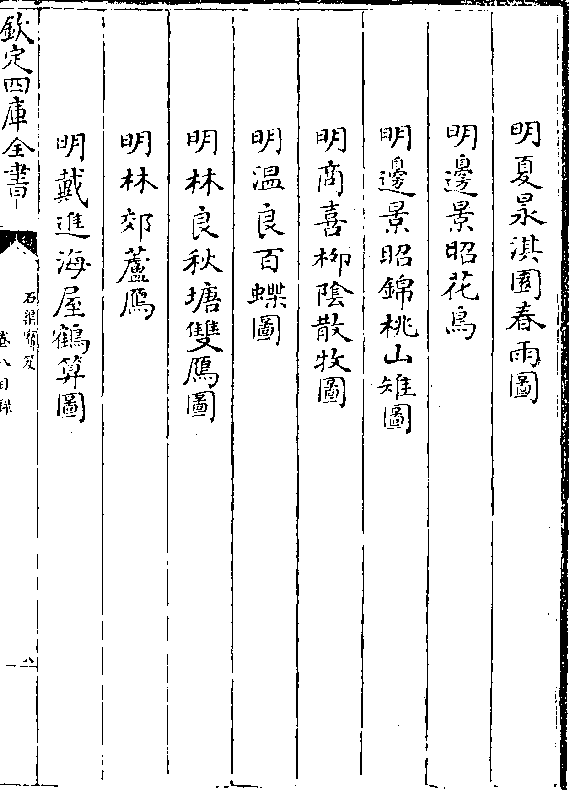 明夏㫤淇園春雨圖
明邊景昭花鳥
明邊景昭錦桃山雉圖
明商喜柳陰散牧圖
明溫良百蝶圖
明林良秋塘雙鴈圖
明林郊蘆鴈
明戴進海屋鶴算圖
欽定四庫全書
石渠寶笈
卷八目錄